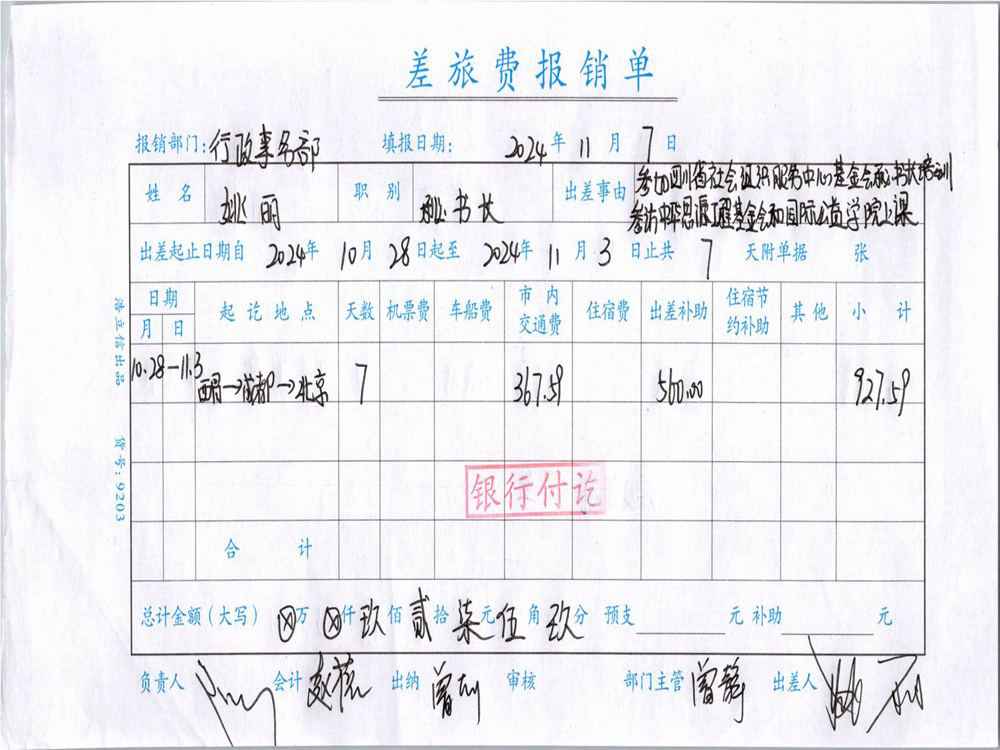 差旅费报销单
报销部门：行政事务部 填报日期： 2024年 11月 7日
姓名 姚丽 职别 秘书长 出差事由 参加四川省社会组织服务中心基金会秘书长培训
参访中华思源工程基金会和国际公益学院上课
出差起止日期自 2024年 10月 28日起至 2024年 11月 3日止共 7 天附单据 张
日期 起讫地点 天数 机票费 车船费 市内交通费 住宿费 出差补助 住宿节约补助 其他 小计
月 日
10.28-11.3 西昌→成都→北京 7 367.59 560.00 927.59
银行付讫
合计
总计金额（大写） ⊗万 ⊗仟 玖佰 贰拾 柒元 伍角 玖分 预支 元 补助 元
负责人 会计 出纳 审核 部门主管 曾静 出差人
浩立信出品 货号：9203